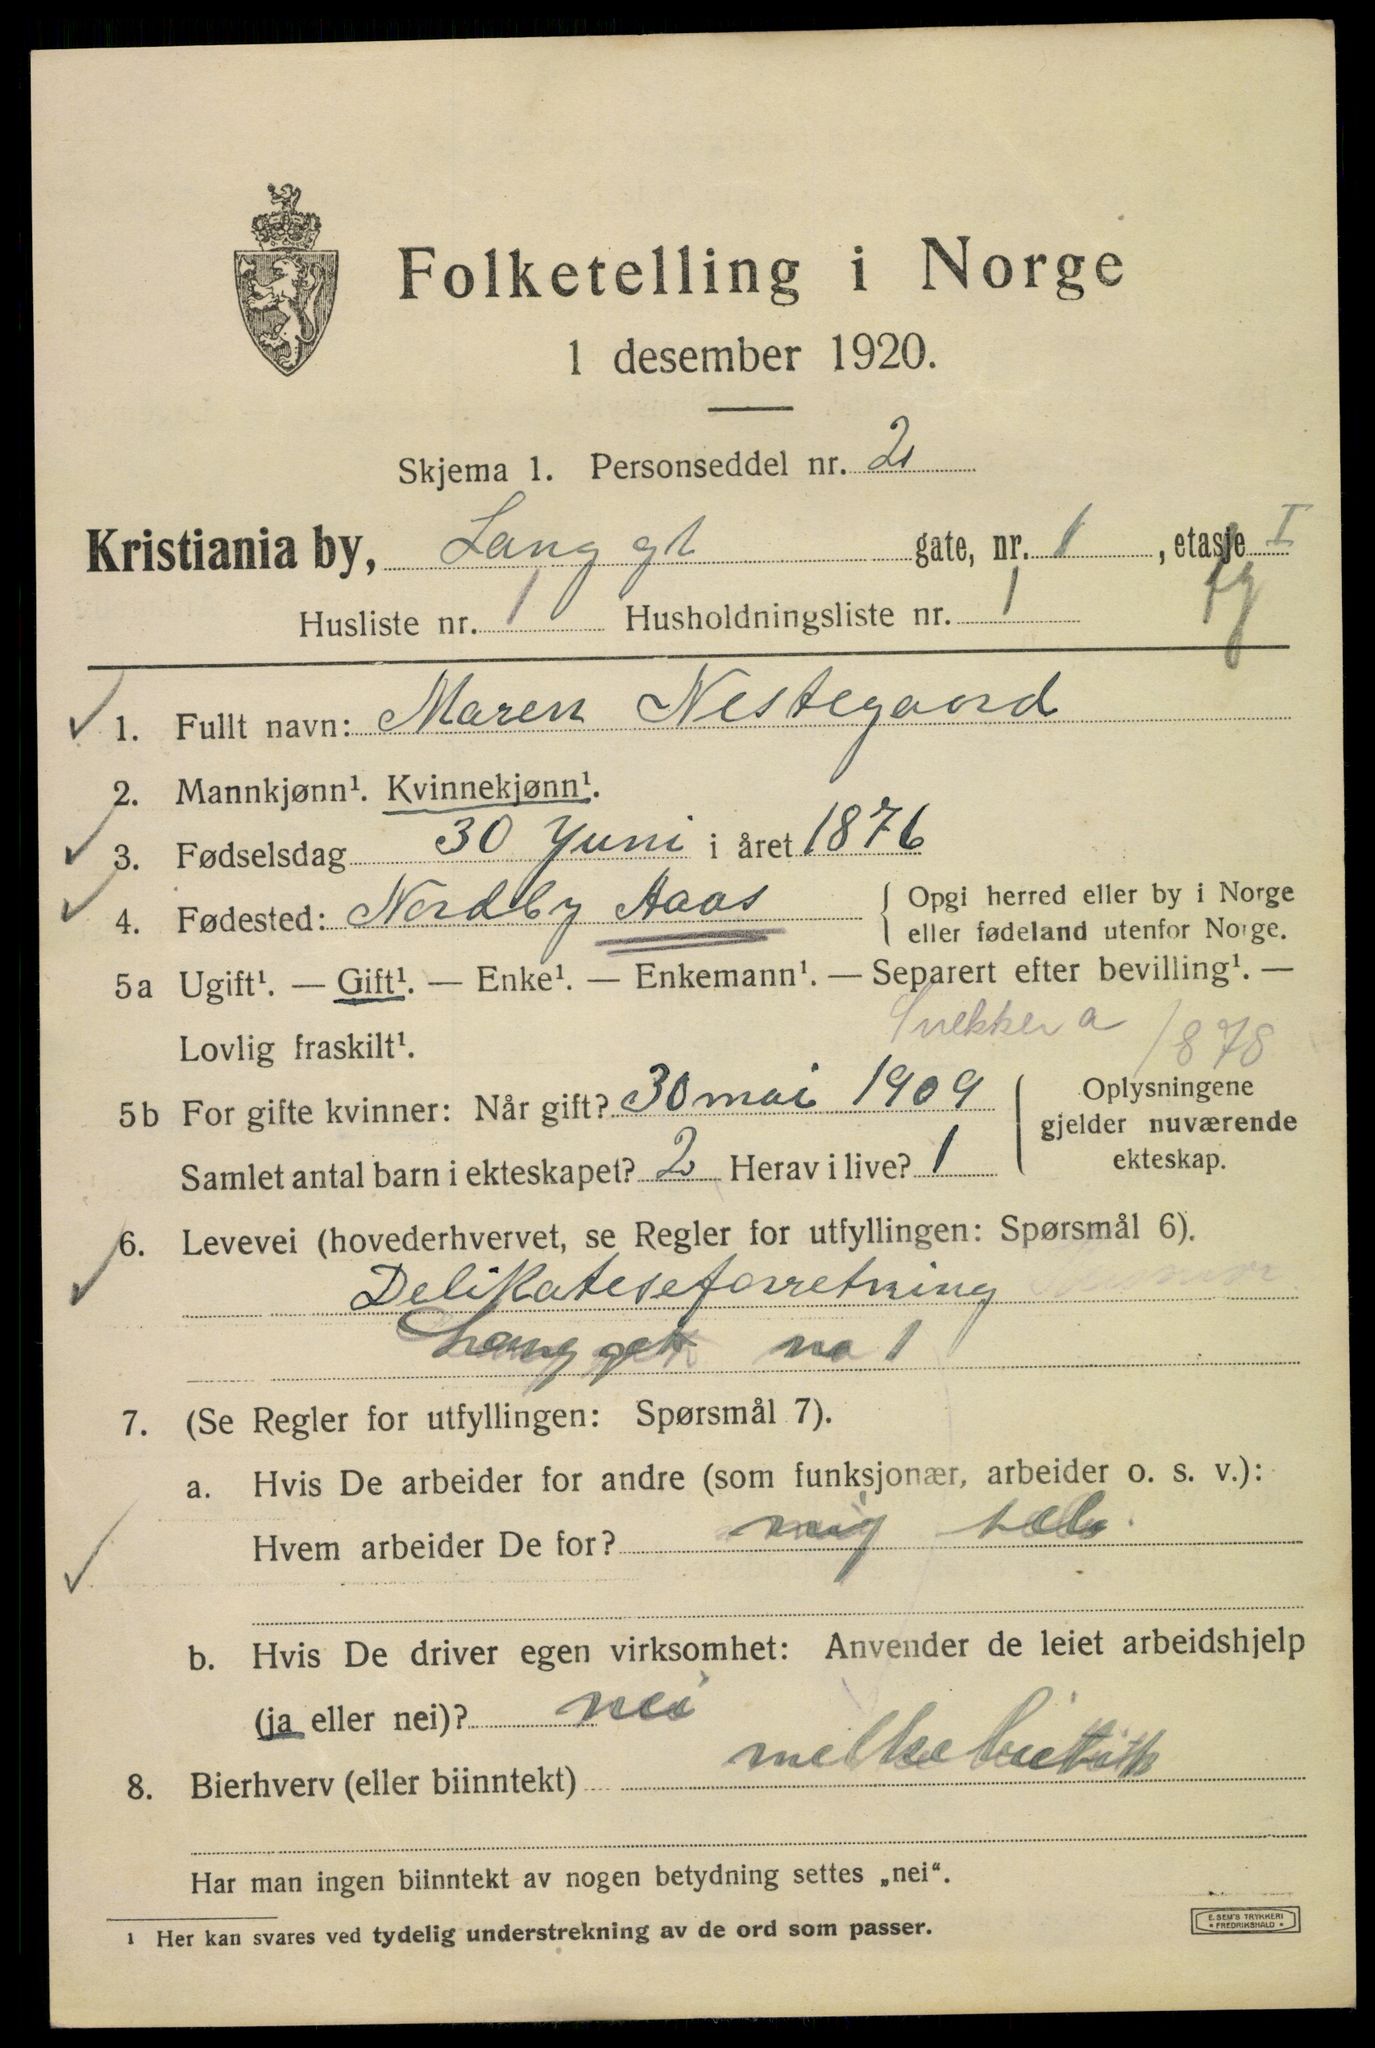 Folketelling i Norge
1 desember 1920.
Skjema 1. Personseddel nr. 2
Kristiania by, Lang gt gate, nr. 1, etasje I
Husliste nr. 1 Husholdningsliste nr. 1
1. Fullt navn: Maren Nestegaard
2. Mannkjønn¹. Kvinnekjønn¹.
3. Fødselsdag 30 Juni i året 1876
4. Fødested: Nordby Aas { Opgi herred eller by i Norge
eller fødeland utenfor Norge.
5a Ugift¹. — Gift¹. — Enke¹. — Enkemann¹. — Separert efter bevilling¹. —
Lovlig fraskilt¹. Snekker a 1878
5b For gifte kvinner: Når gift? 30 mai 1909 { Oplysningene
gjelder nuværende
ekteskap.
Samlet antal barn i ekteskapet? 2 Herav i live? 1
6. Levevei (hovederhvervet, se Regler for utfyllingen: Spørsmål 6).
Delikateseforretning
Lang gt no 1
7. (Se Regler for utfyllingen: Spørsmål 7).
a. Hvis De arbeider for andre (som funksjonær, arbeider o. s. v.):
Hvem arbeider De for? mig
b. Hvis De driver egen virksomhet: Anvender de leiet arbeidshjelp
(ja eller nei)? nei
8. Bierhverv (eller biinntekt)
Har man ingen biinntekt av nogen betydning settes „nei“.
¹ Her kan svares ved tydelig understrekning av de ord som passer.
E. SEM'S TRYKKERI
* FREDRIKSHALD *